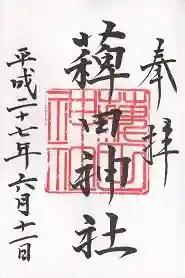 奉拝
薭田神社
平成二十七年六月十一日